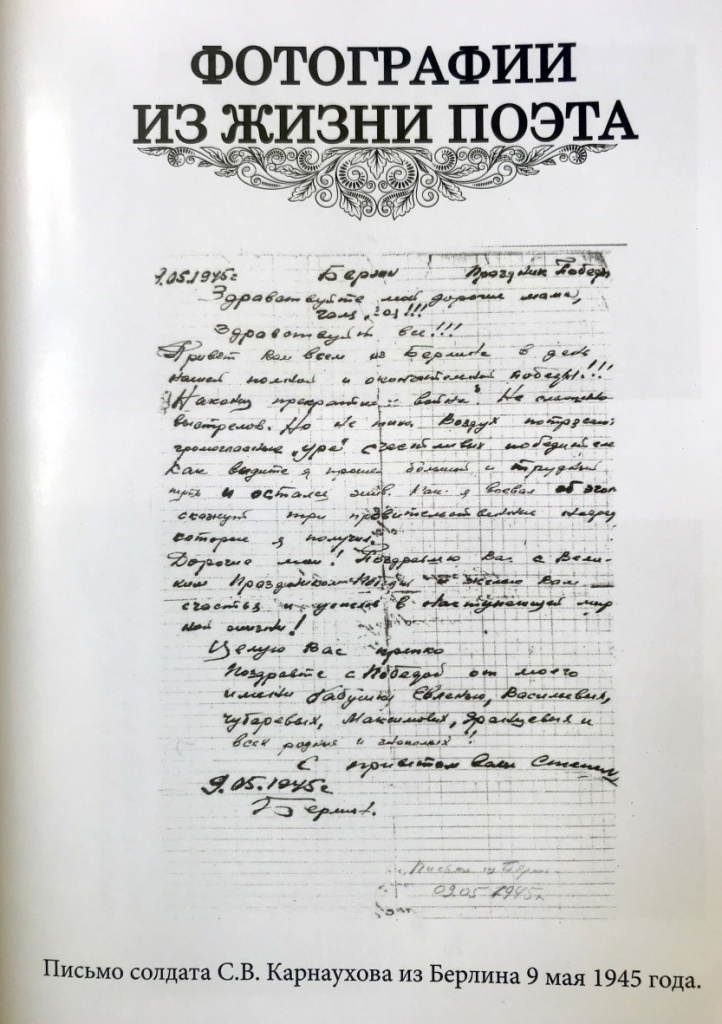 ФОТОГРАФИИ
ИЗ ЖИЗНИ ПОЭТА
9.05.1945г Берлин Праздник Победы
Здравствуйте мои дорогие мама,
Здравствуйте все!!!
Привет вам всем из Берлина в день
нашей полной и окончательной победы!!!
война. Не слышно
выстрелов. Но не тихо. Воздух
громогласные "ура" счастливых
Как видите я прошел большой и трудный
путь и остался жив. Как я воевал об этом
скажут три правительственные
которые я получил.
Дорогие мои! Поздравляю Вас с Вели-
ким Праздником Победы и желаю Вам
счастья и успехов в наступающей мир
ной жизни!
Целую Вас крепко
Поздравте с Победой от моего
имени бабушку Василевых,
Чубаревых, и
всех родных и знакомых!
С приветом Ваш Степан
9.05.1945г
Берлин.
Письмо из
09.05 1945г.
Письмо солдата С.В. Карнаухова из Берлина 9 мая 1945 года.